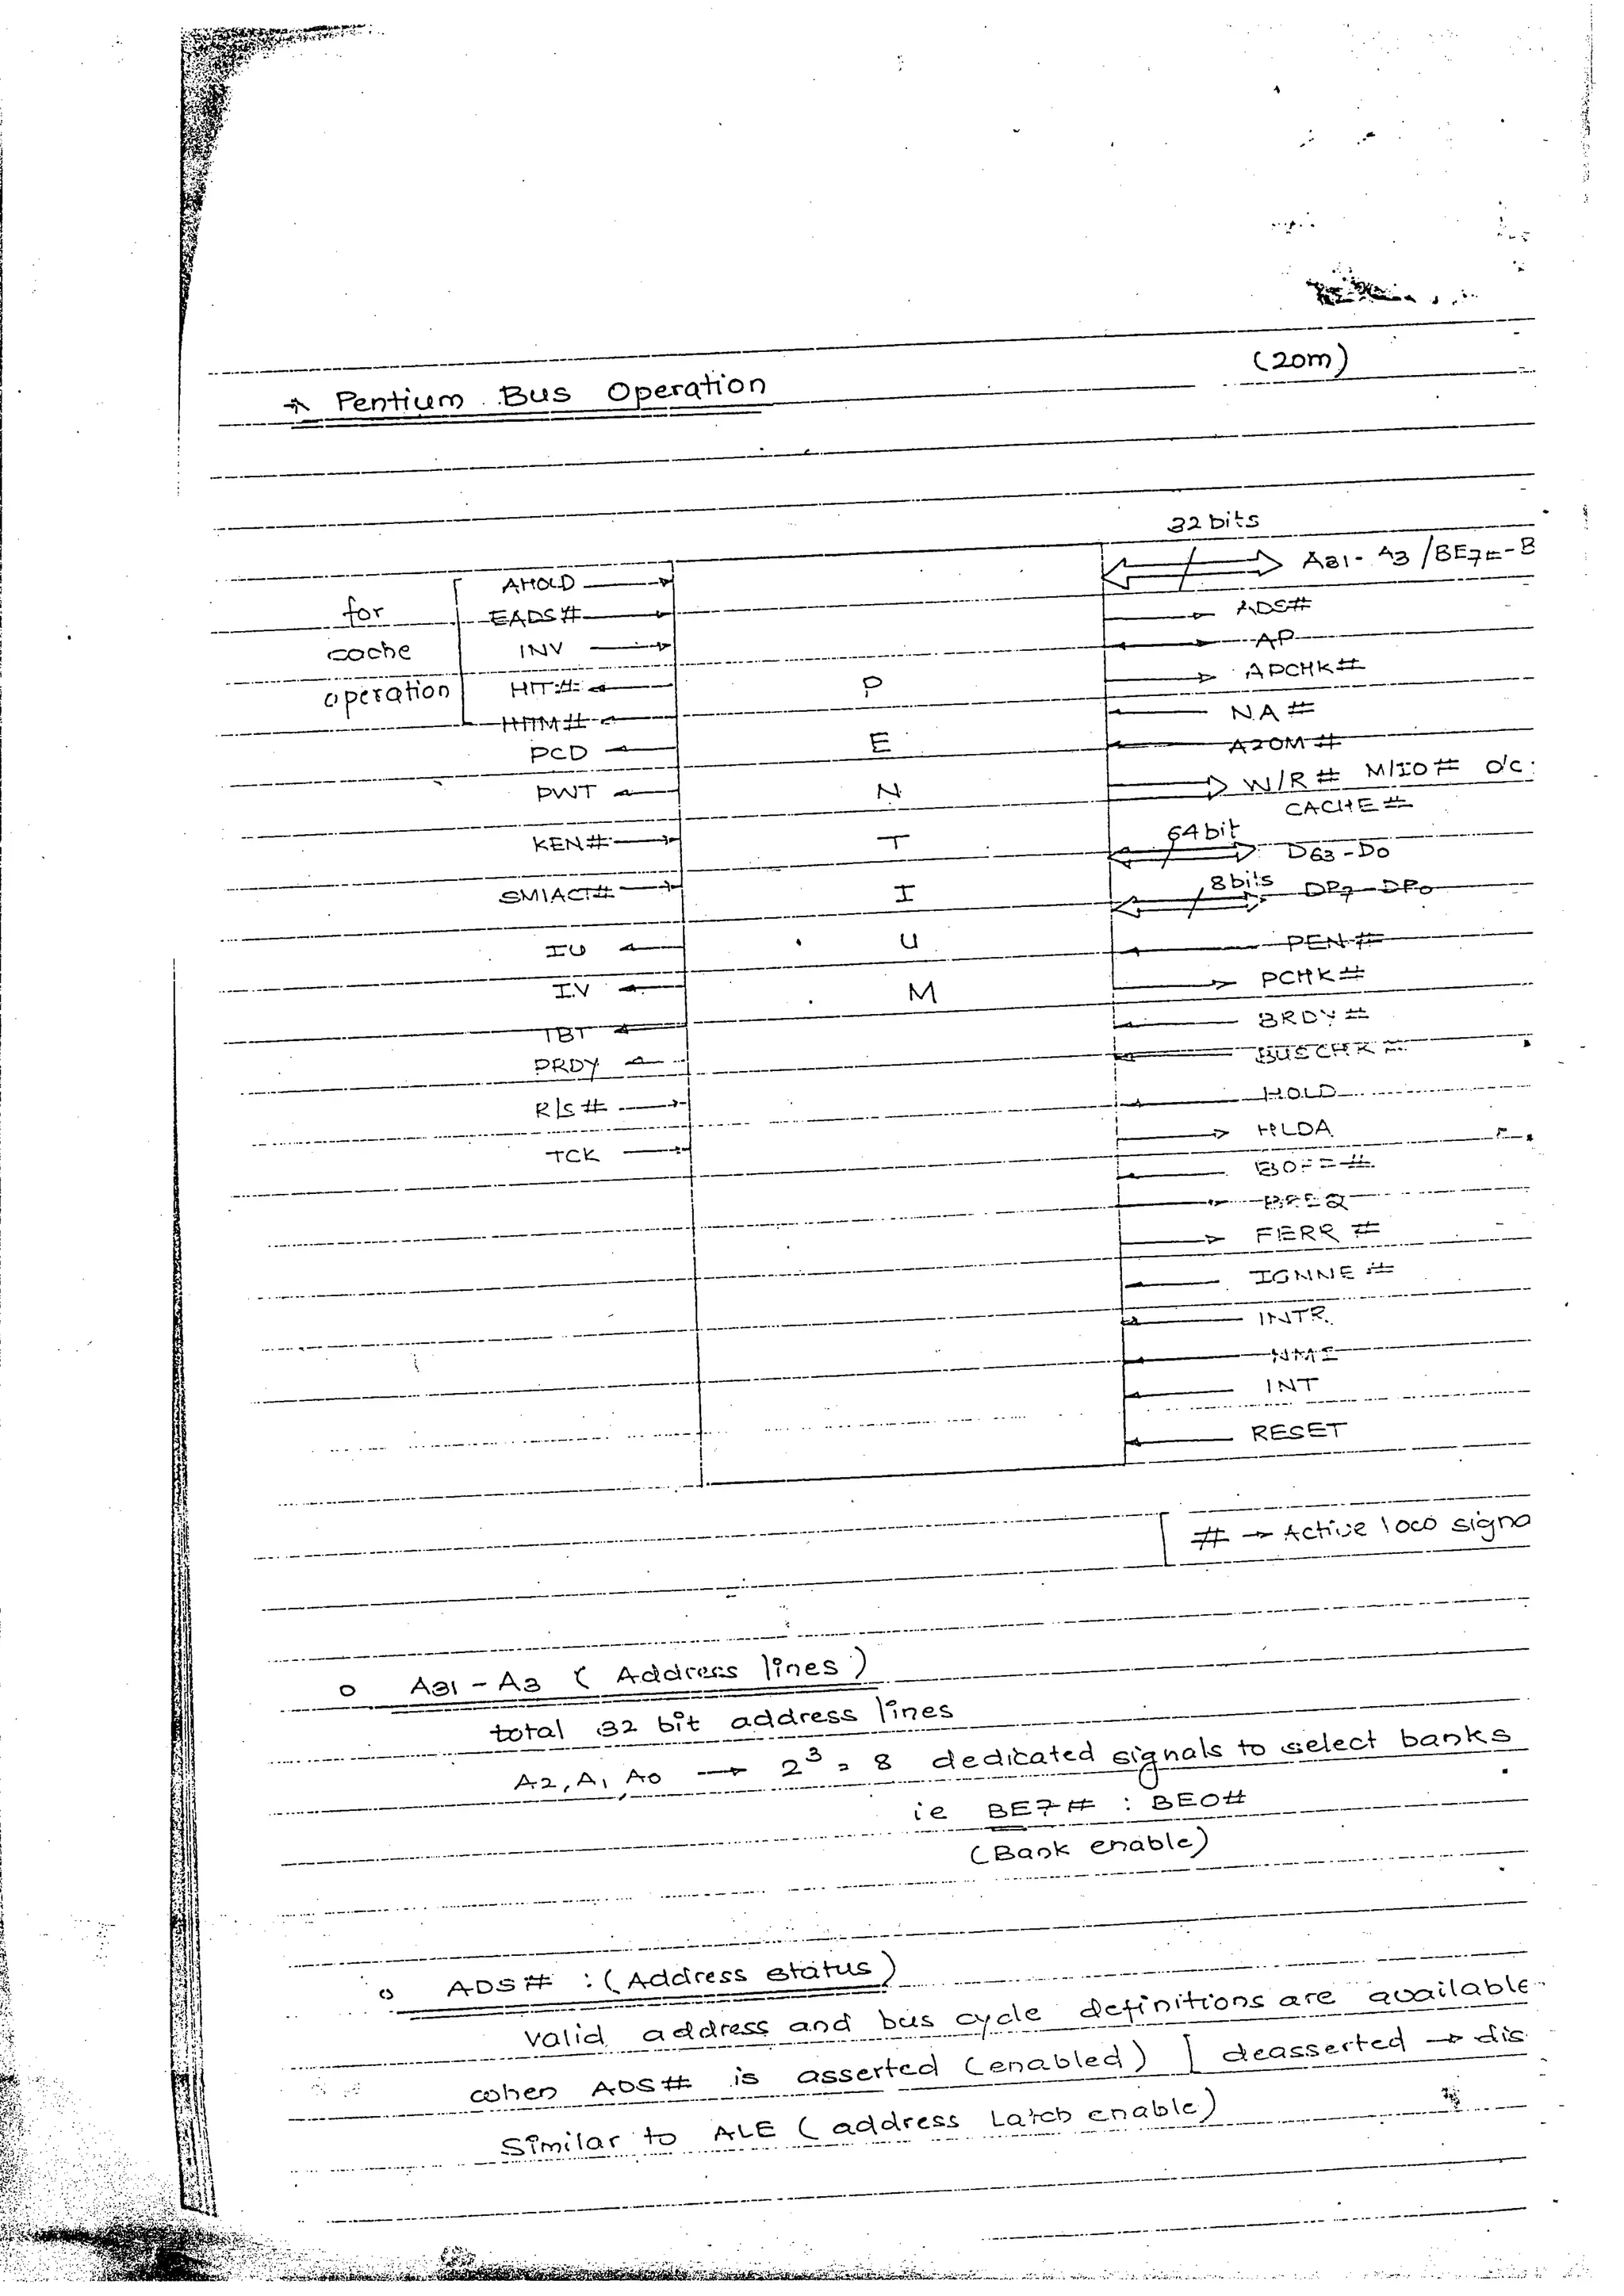 (20m)
* Pentium Bus Operation
32 bits
A31 - A3 / BE7# - B
AHOLD
for EADS# ADS#
cache INV AP
operation HIT# APCHK#
HITM# NA#
PCD A20M#
PWT W/R# M/IO# D/C
CACHE#
KEN# 64 bit D63 - D0
SMIACT# 8 bits DP7 - DP0
IU PEN#
IV PCHK#
IBT BRDY#
PRDY BUSCHK#
R/S# HOLD
TCK HLDA
BOFF#
BREQ
FERR#
IGNNE#
INTR
NMI
INT
RESET
P
E
N
T
I
U
M
# → Active low signa
o A31 - A3 ( Address lines )
total 32 bit address lines
A2, A1 A0 → 2³ = 8 dedicated signals to select banks
ie BE7# : BE0#
(Bank enable)
o ADS# : ( Address status )
valid address and bus cycle definitions are available
when ADS# is asserted (enabled) | deasserted → dis
Similar to ALE ( address Latch enable )